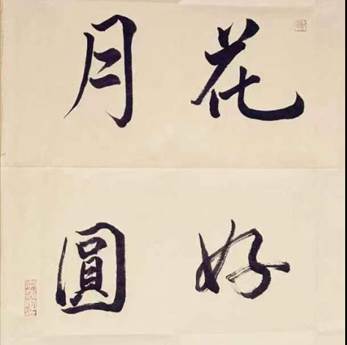 花好
月圓